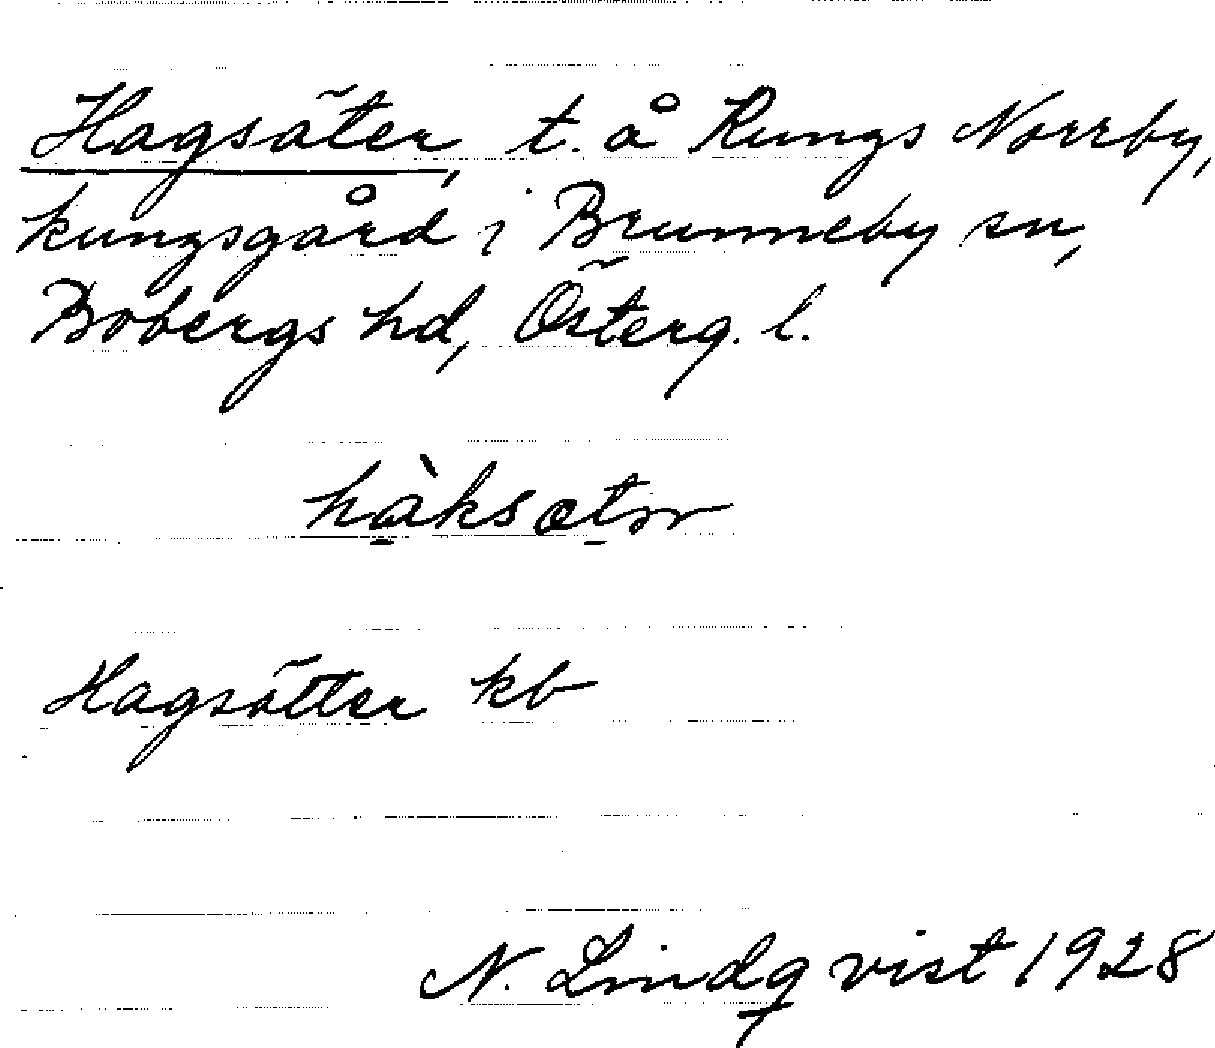 Hagsäter, t. å Kungs Norrby,
kungsgård i Brunneby sn,
Bobergs hd, Österg. l.
hàksætər
Hagsätter kb
N. Lindqvist 1928